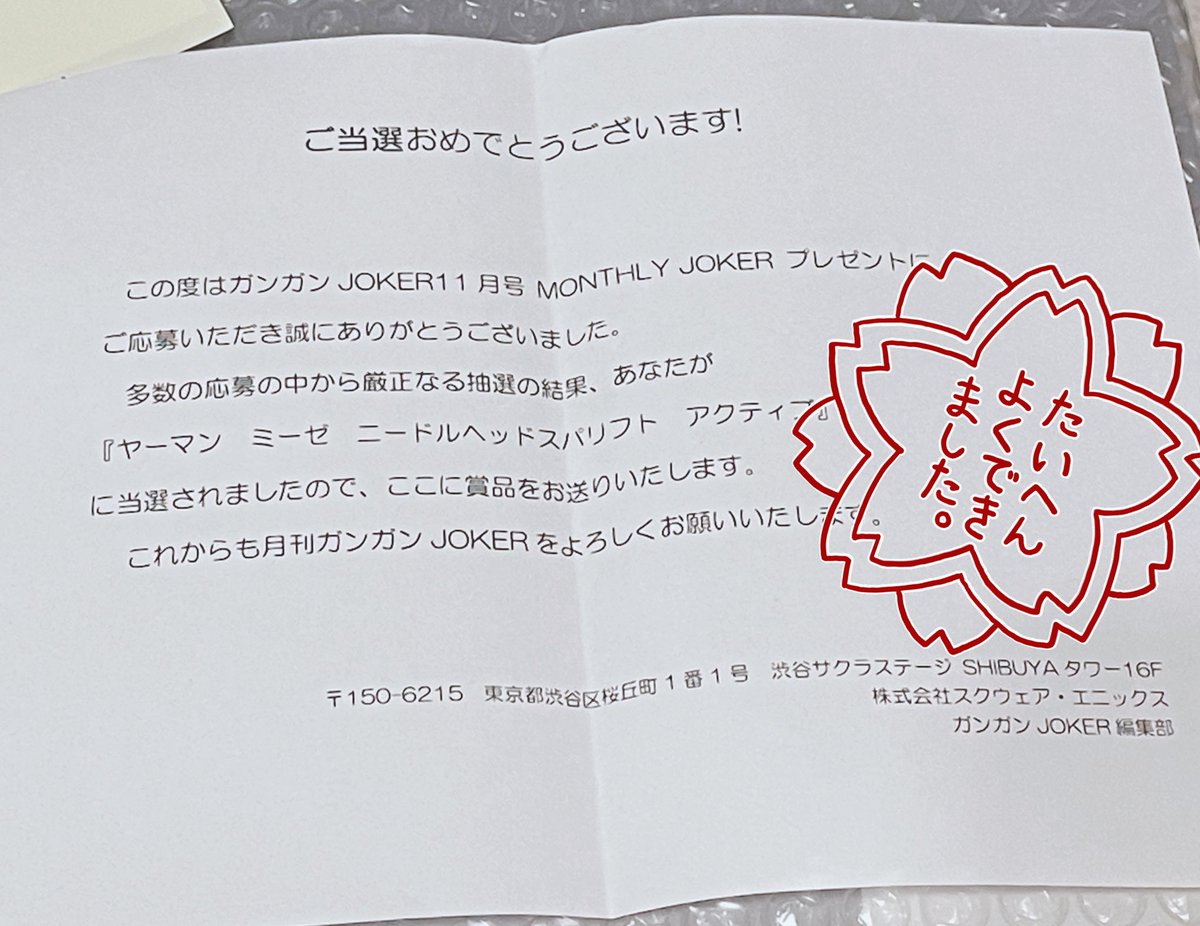 ご当選おめでとうございます!
この度はガンガン JOKER11 月号 MONTHLY JOKER プレゼントに
ご応募いただき誠にありがとうございました。
多数の応募の中から厳正なる抽選の結果、あなたが
『ヤーマン ミーゼ ニードルヘッドスパリフト アクティブ』
に当選されましたので、ここに賞品をお送りいたします。
これからも月刊ガンガン JOKER をよろしくお願いいたします。
たいへん
よくでき
ました。
〒150-6215 東京都渋谷区桜丘町 1 番 1 号 渋谷サクラステージ SHIBUYA タワー16F
株式会社スクウェア・エニックス
ガンガン JOKER 編集部